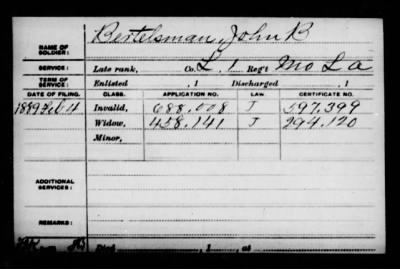 NAME OF SOLDIER: Bertelsman, John B
SERVICE: Late rank, Co. L, 1 Reg't Mo L A
TERM OF SERVICE: Enlisted , 1 Discharged , 1
DATE OF FILING. CLASS. APPLICATION NO. LAW. CERTIFICATE NO.
1889 Feb 4 Invalid, 688.008 J 597.399
Widow, 458.141 J 294.120
Minor,
ADDITIONAL SERVICES:
REMARKS:
Died , 1 , at